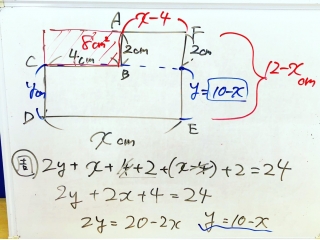 A x-4 F
8cm² 2cm 2cm
C 4cm B y=10-x 12-x cm
ycm
D E
x cm
2y+x+4+2+(x-4)+2=24
2y+2x+4=24
2y=20-2x y=10-x